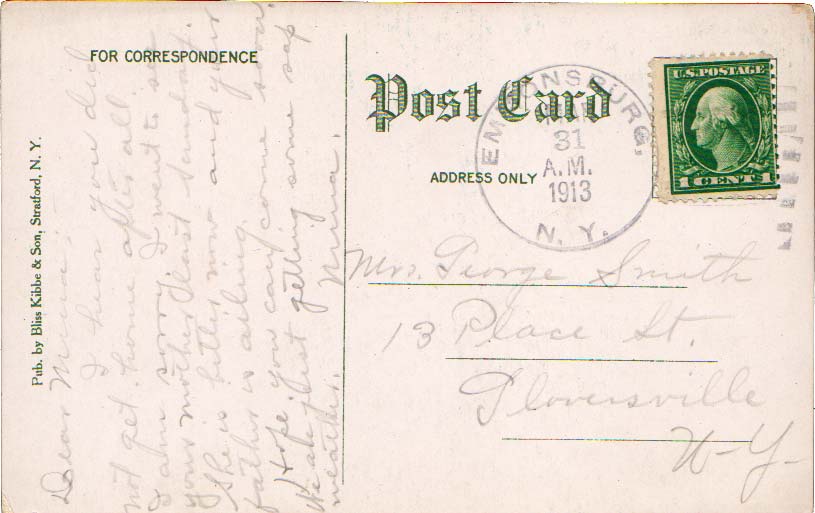 FOR CORRESPONDENCE
Post Card
ADDRESS ONLY
EMMONSBURG,
MAR
31
A.M.
1913
N. Y.
U.S. POSTAGE
1 CENT 1
Mrs. George Smith
13 Place St.
Gloversville
N-Y-
Pub. by Bliss Kibbe & Son, Stratford, N. Y.
Dear Mina;
I hear you did
not get home after all
I am sorry. I went to see
your mother last Sunday.
She is better now and your
father is ailing.
Hope you can come soon.
We are just getting some sap
weather.